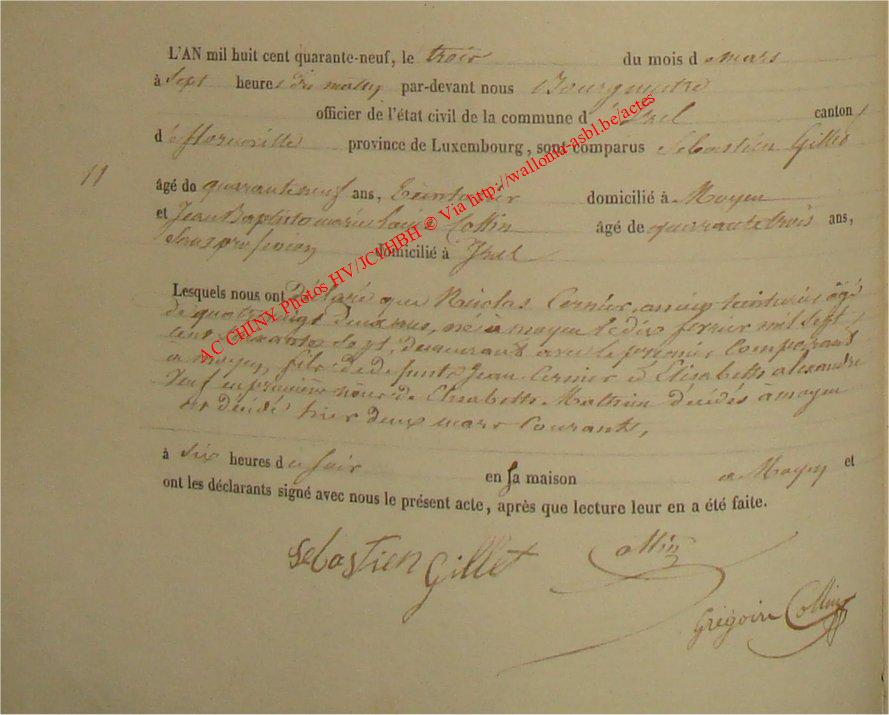 L'AN mil huit cent quarante-neuf, le trois du mois d e mars
à Sept heures du matin par-devant nous Bourgmestre
officier de l'état civil de la commune d' Izel canton
d e florenville province de Luxembourg, sont comparus Sebastien Gillet
11
âgé de quarante neuf ans, teinturier domicilié à Moyen
et Jean Baptiste marie Louis Collin âgé de quarante trois ans,
Sans profession domicilié à Izel
Lesquels nous ont Déclaré que Nicolas Cernier, ancien teinturier âgé
de quatre vingt deux ans, né à moyen le dix février mil sept
cent soixante Sept, demeurant avec le premier Comparant
a moyen, fils de defunts Jean Cernier et Elisabeth alexandre
Veuf en première nôce de Elisabeth décédés à moyen
est décédé hier deux mars Courant,
à six heures d u soir en sa maison a Moyen et
ont les déclarants signé avec nous le présent acte, après que lecture leur en a été faite.
Sebastien Gillet Collin
Grégoire Collin
AC CHINY Photos HV/JCV/HBH © Via http://wallonia-asbl.be/actes